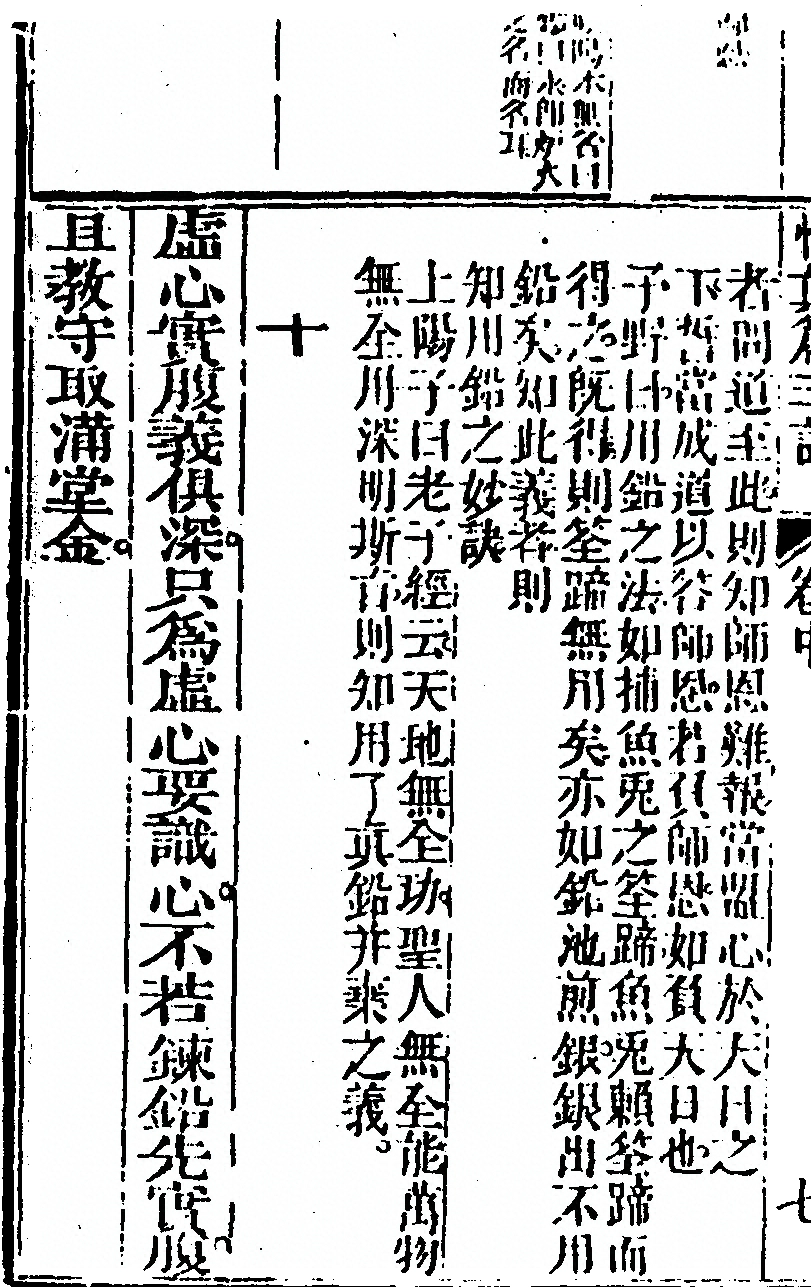 悟真篇三註 卷中 七
者問道至此則知師恩難報當盟心於大日之
下誓當成道以答師恩若負師恩如負大日也
子野曰用鉛之法如捕魚兎之筌蹄魚兎賴筌蹄而
得之既得則筌蹄無用矣亦如鉛池煎銀銀出不用
鉛矣知此義者則
知用鉛之妙訣
上陽子曰老子經云天地無全功聖人無全能萬物
無全用深明斯旨則知用了真鉛弃棄之義
十
虛心實腹義俱深只爲虛心要識心不若鍊鉛先實腹
且教守取滿堂金